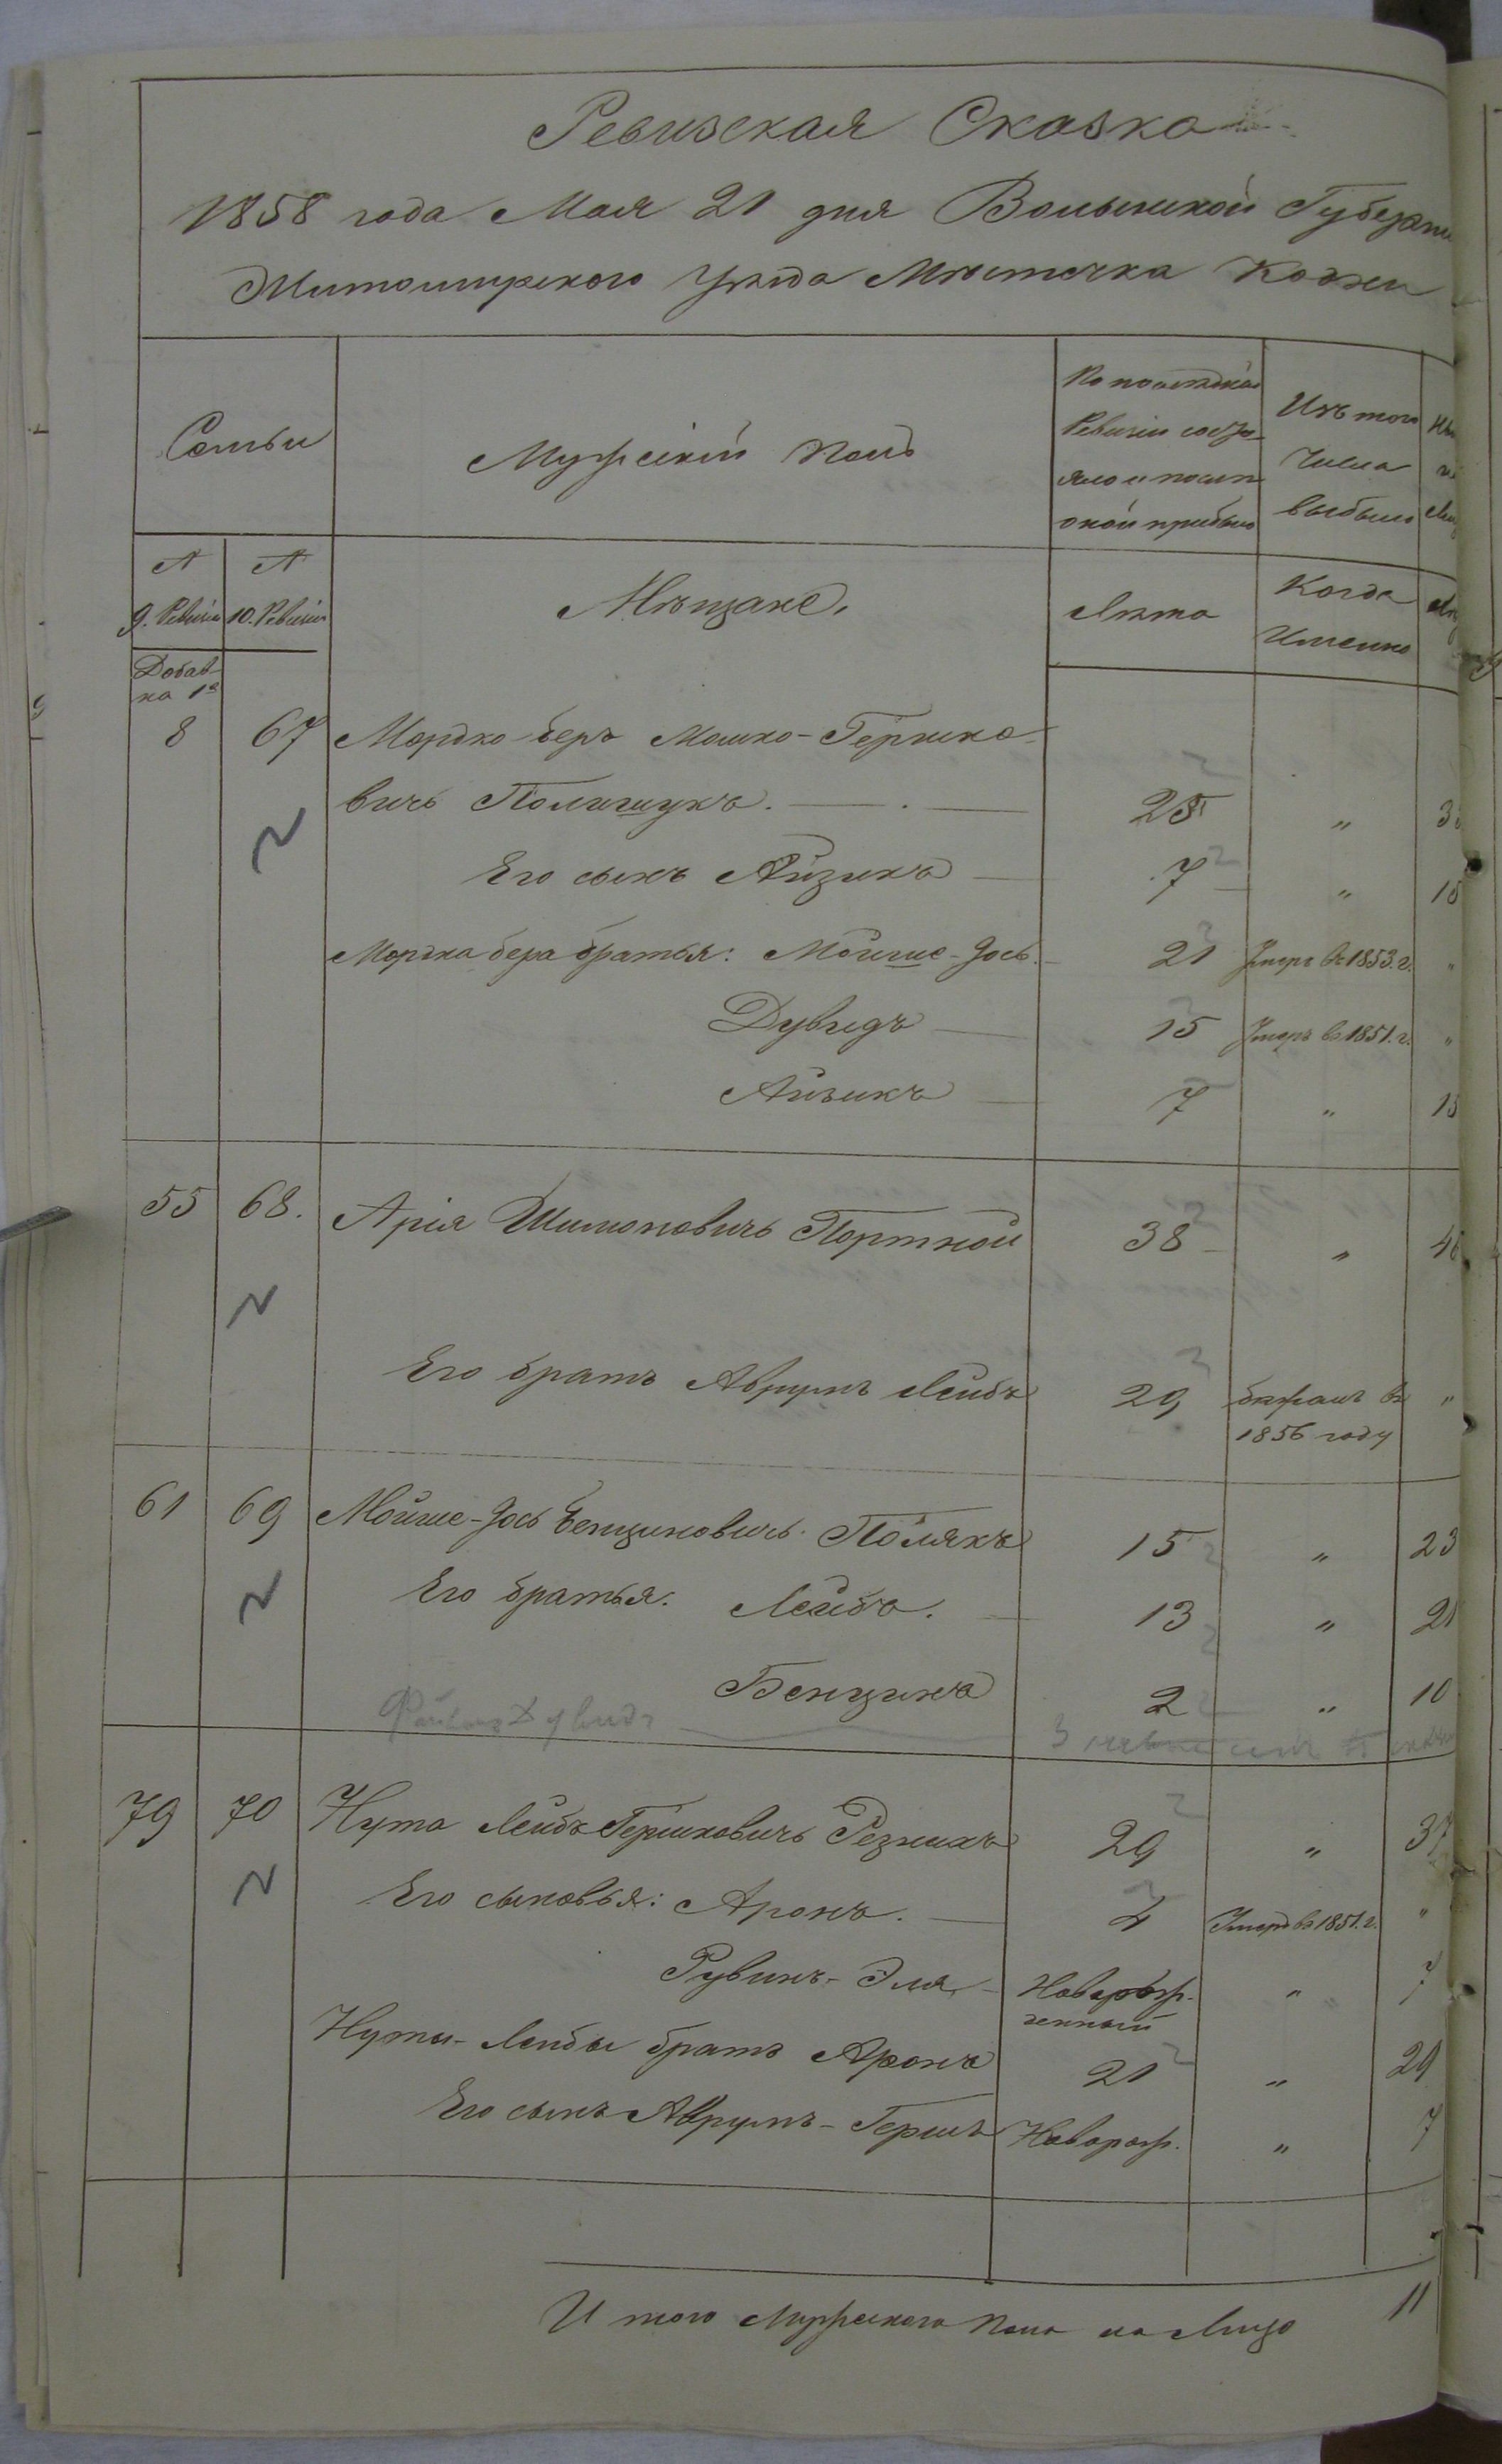 Ревизская Сказка
1858 года Мая 21 дня Волынской Губерни
Житомирского Уѣзда Мѣстечка Кодни
Семьи
Мужескій Полъ
По послѣдней
Ревизіи состо-
яло и послѣ
оной прибыло
Изъ того
Числа
выбыло
№
9. Ревизіи
№
10. Ревизіи
Мѣщане.
Лѣта
Когда
Именно
Добав-
ка 1я
8 67 Мордко-Беръ Мошко-Гершко-
вичъ Полищукъ. 25 „ 3
Его сынъ Айзикъ 7 „ 15
Мордка бера братья: Мойше-Іось. 21 Умеръ въ 1853. г. „
Дувидъ 15 Умеръ въ 1851. г. „
Айзикъ 7 „ 15
55 68. Арія Шимоновичъ Портной 38 „ 46
Его братъ Аврумъ Лейбъ 29 бѣжалъ въ „
1856 году
61 69 Мойше-Іось Бенционовичъ Полякъ 15 „ 23
Его братья: Лейба. 13 „ 21
Бенционъ 2 „ 10
Дувидъ
79 70 Нута Лейбъ Гершковичъ Резникъ 29 „ 37
Его сыновья: Аронъ. 4 Умеръ въ 1851. г. „
Рувинъ-Эля Новорож-
денный „ 7
Нуты-Лейбы братъ Аронъ 21 „ 29
Его сынъ Аврумъ-ГершъНоворож. „ 7
И того Мужескаго Пола на Лицо 11